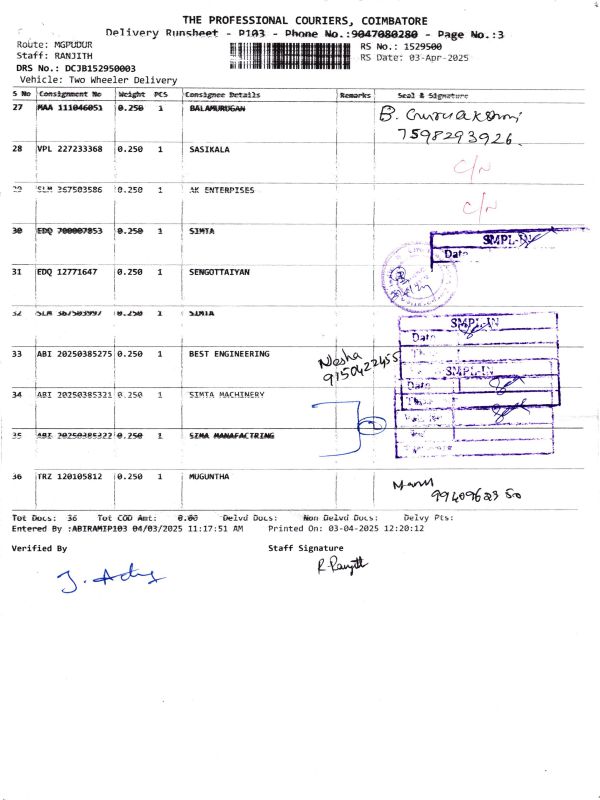 THE PROFESSIONAL COURIERS, COIMBATORE
Delivery Runsheet - P103 - Phone No.:9047080280 - Page No.:3
Route: MGPUDUR
Staff: RANJITH
DRS No.: DCJB152950003
Vehicle: Two Wheeler Delivery
RS No.: 1529500
RS Date: 03-Apr-2025
S No Consignment No Weight PCS Consignee Details Remarks Seal & Signature
27 MAA 111046051 0.250 1 BALAMURUGAN
7598293926
28 VPL 227233368 0.250 1 SASIKALA C/N
29 SLM 367503586 0.250 1 AK ENTERPISES C/N
30 EDQ 700007853 0.250 1 SIMTA
SMPL-IN
Date
31 EDQ 12771647 0.250 1 SENGOTTAIYAN
32 SLM 367503997 0.250 1 SIMTA
SMPL-IN
Date
33 ABI 20250385275 0.250 1 BEST ENGINEERING Nesha
9150422455
SMPL-IN
Date
34 ABI 20250385321 0.250 1 SIMTA MACHINERY
35 ABI 20250385322 0.250 1 SIMA MANAFACTRING
36 TRZ 120105812 0.250 1 MUGUNTHA
Tot Docs: 36 Tot COD Amt: 0.00 Delvd Docs: Non Delvd Docs: Delvy Pts:
Entered By :ABIRAMIP103 04/03/2025 11:17:51 AM Printed On: 03-04-2025 12:20:12
Verified By Staff Signature